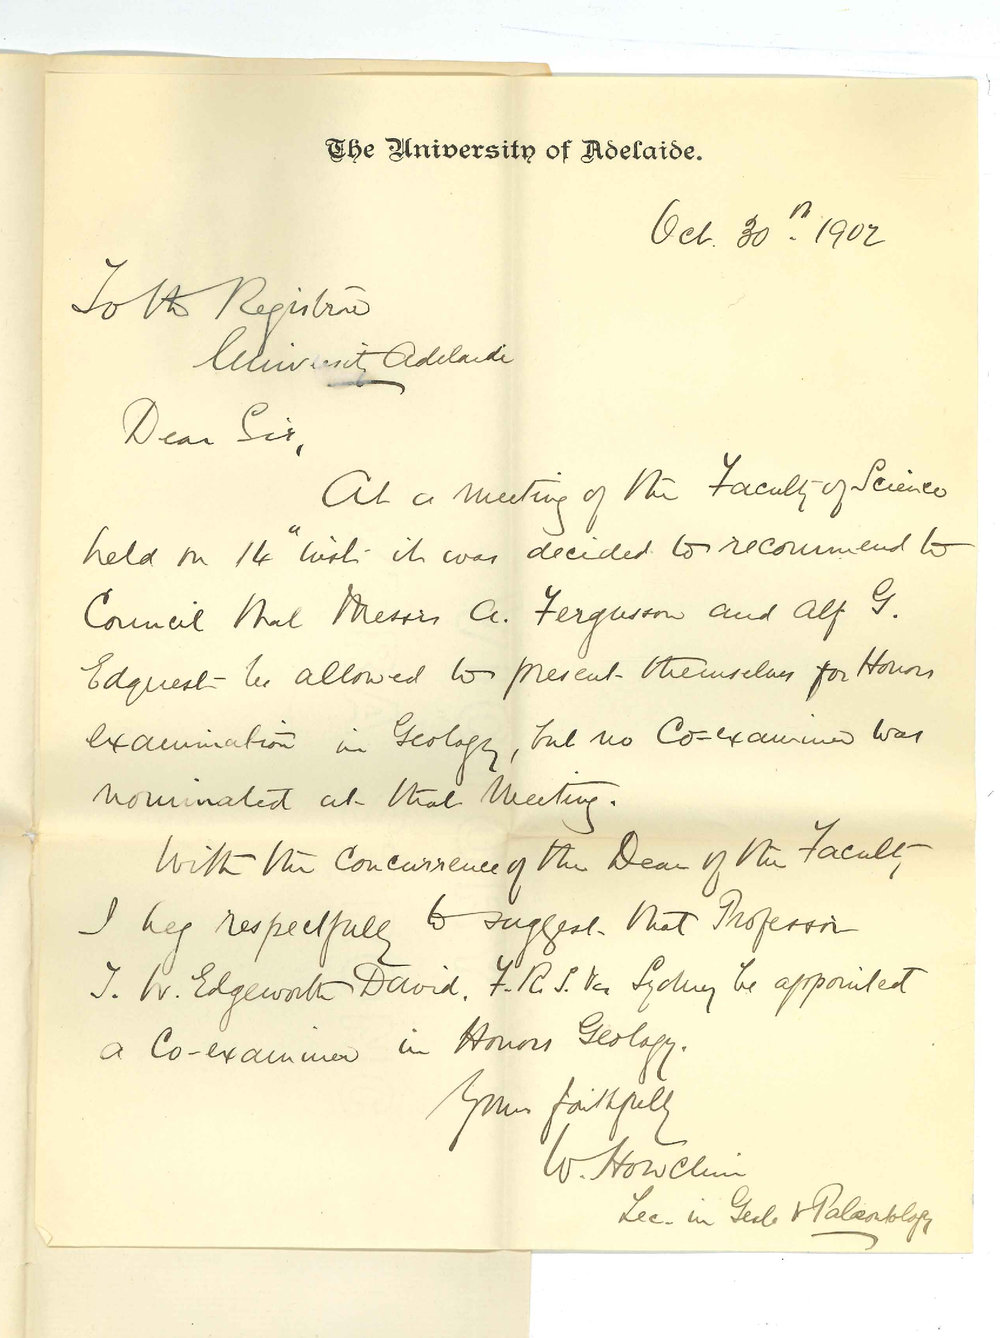 The University of Adelaide.
Oct. 30th. 1902
To the Registrar
University Adelaide
Dear Sir,
At a meeting of the Faculty of Science
held on 14th inst. it was decided to recommend to
Council that Messrs A. Fergusson and Alf G.
Edquist be allowed to present themselves for Honors
examination in Geology, but no Co-examiner was
nominated at that Meeting.
With the concurrence of the Dean of the Faculty
I beg respectfully to suggest that Professor
T. W. Edgeworth David, F.R.S. &c Sydney be appointed
a Co-examiner in Honors Geology.
Yours faithfully
W. Howchin
Lec. in Geol. & Palæontology